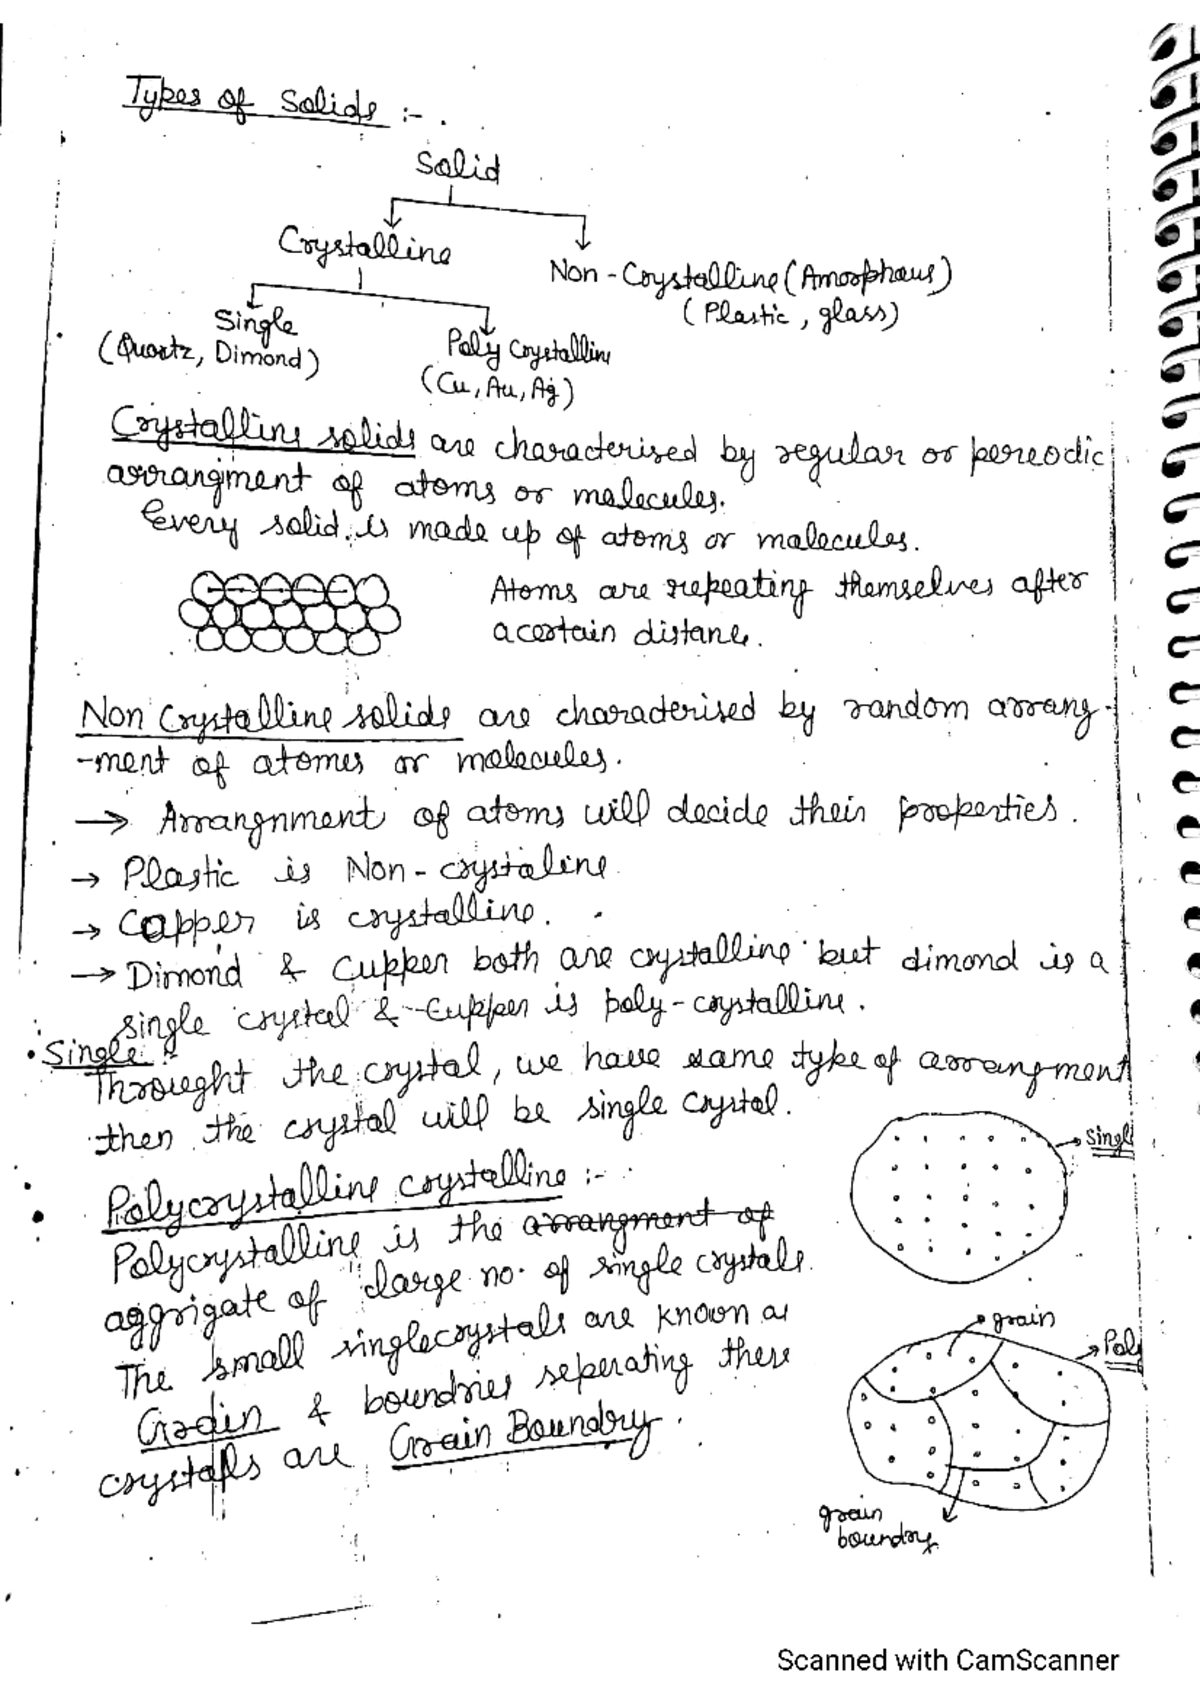 Types of Solids :-
Solid
Crystalline
Non-Crystalline (Amorphous)
(Plastic, glass)
Single
(Quartz, Dimond)
Poly Crystalline
(Cu, Au, Ag)
Crystalline solids are characterised by regular or pereodic
arrangiment of atoms or molecules.
Every solid is made up of atoms or malecules.
Atoms are repeating themselves after
a certain distane.
Non Crystalline solids are characterised by random arrang-
-ment of atomes or molecules.
→ Arrangnment of atoms will decide their properties.
→ Plastic is Non-crystaline.
→ Copper is crystalline.
→ Dimond & Cupper both are crystalline but dimond is a
single crystal & Cupper is poly-crystalline.
• Single :-
Throught the crystal, we have same type of arrangment
then the crystal will be single crystal.
Single
Polycrystalline crystalline :-
Polycrystalline is the arrangment of
aggrigate of large no. of single crystals.
The small singlecrystals are known as
Grain & boundries seperating these
crystals are Grain Boundry.
grain
Poly
grain
boundry
Scanned with CamScanner